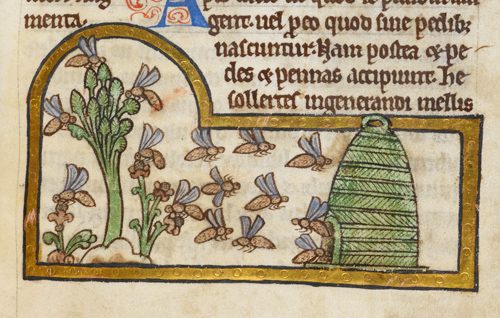 A
menta. gent. uel p eo quod sine pedibz
nascuntur. Nam postea & pe
des & pennas accipiunt. he
sollertes ingenerandi mellis